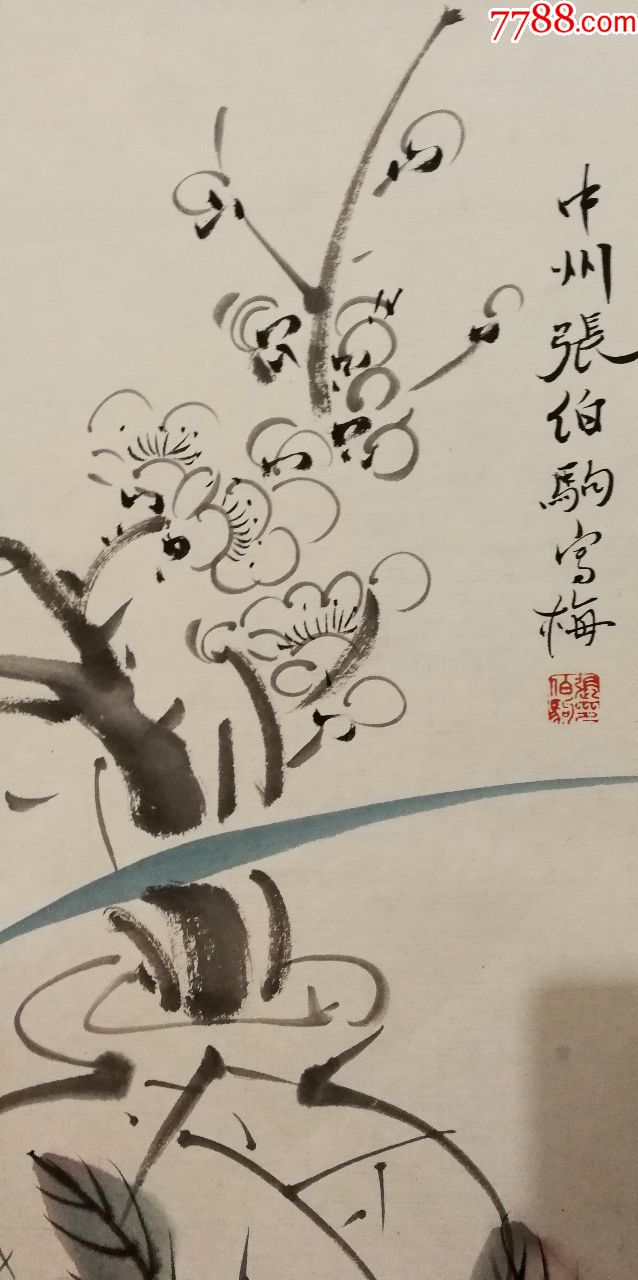 7788.com
中州張伯駒寫梅
張伯駒印